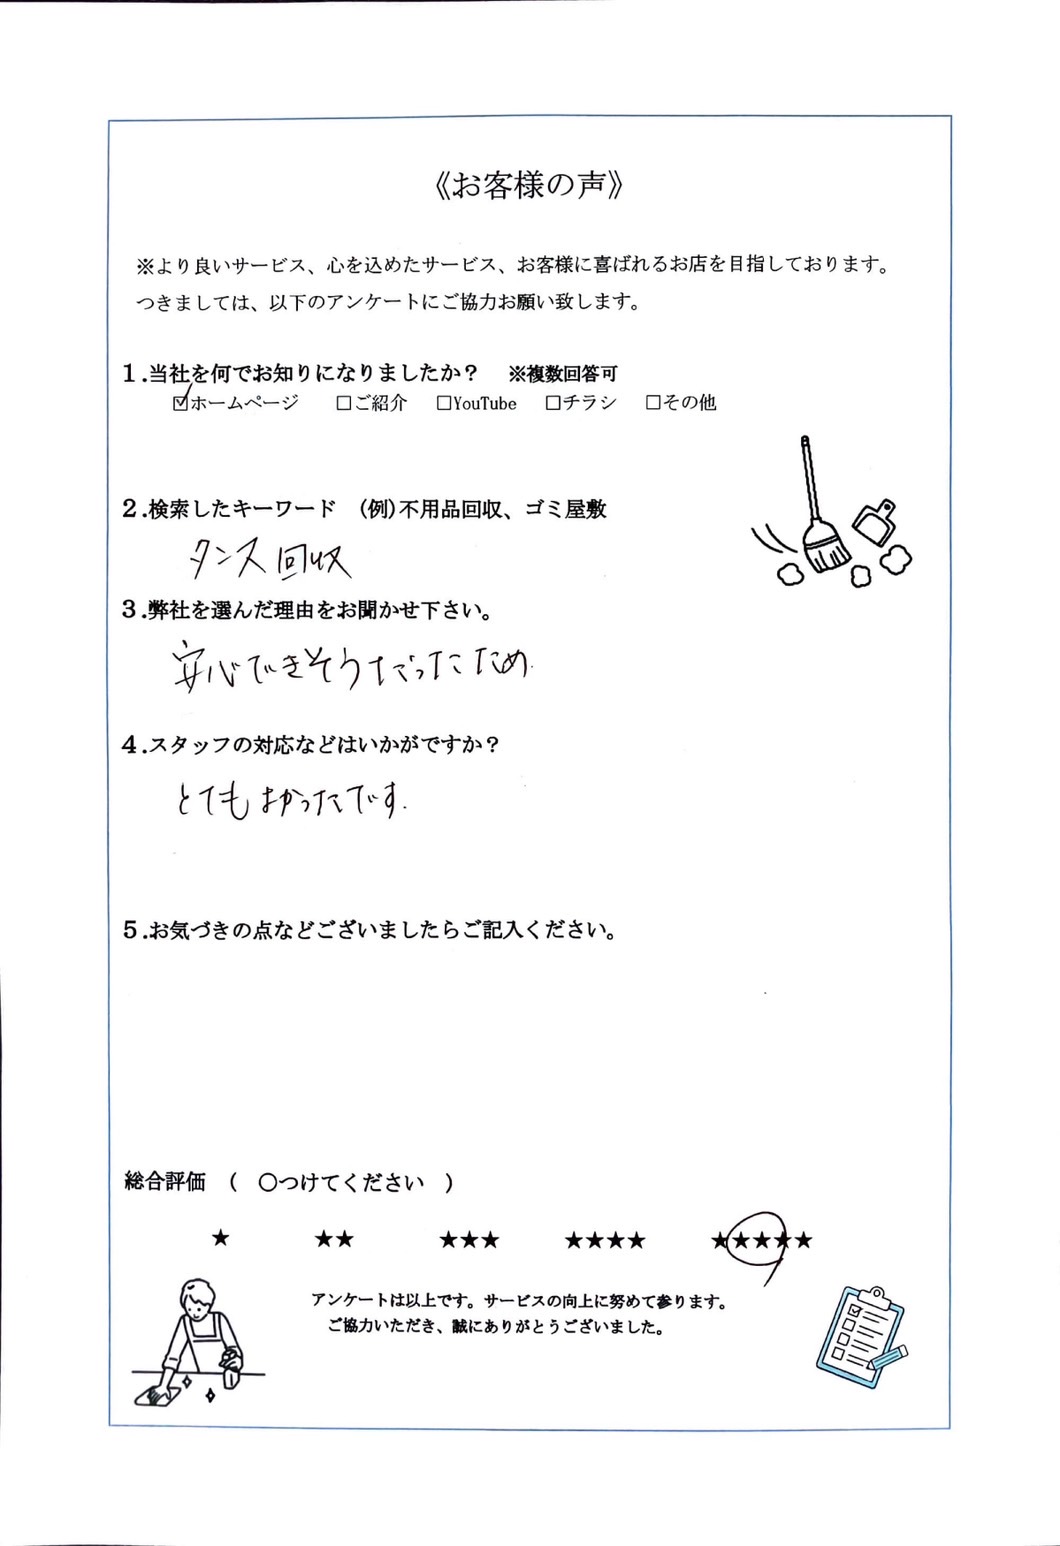 《お客様の声》
※より良いサービス、心を込めたサービス、お客様に喜ばれるお店を目指しております。
つきましては、以下のアンケートにご協力お願い致します。
1.当社を何でお知りになりましたか？ ※複数回答可
☑ホームページ □ご紹介 □YouTube □チラシ □その他
2.検索したキーワード （例)不用品回収、ゴミ屋敷
タンス回収
3.弊社を選んだ理由をお聞かせ下さい。
安心できそうだったため.
4.スタッフの対応などはいかがですか？
とてもよかったです.
5.お気づきの点などございましたらご記入ください。
総合評価 （ ○つけてください ）
★ ★★ ★★★ ★★★★ ★★★★★
アンケートは以上です。サービスの向上に努めて参ります。
ご協力いただき、誠にありがとうございました。